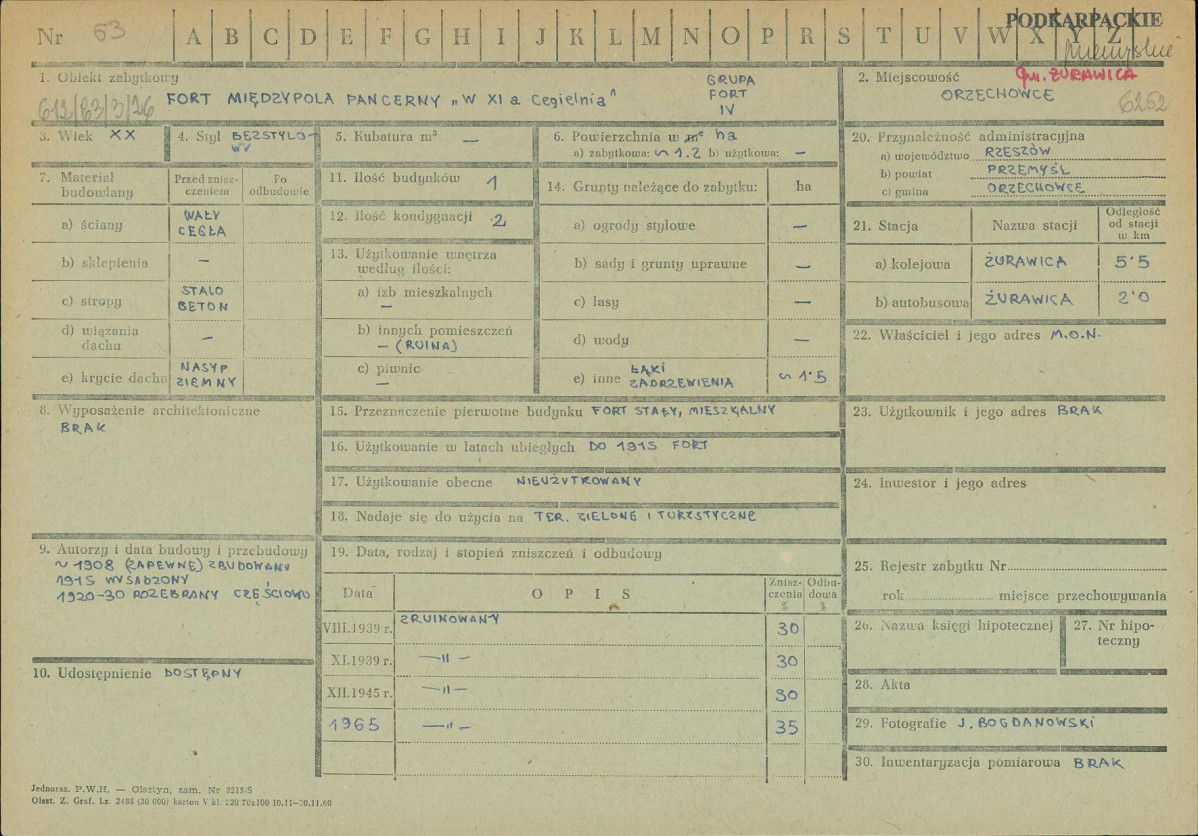 Nr 63 A B C D E F G H I J K L M N O P R S T U V W X Y Z
PODKARPACKIE
przemyskie
1. Obiekt zabytkowy
612/83/3/26 FORT MIĘDZYPOLA PANCERNY „W XI a Cegielnia"
GRUPA
FORT
IV
2. Miejscowość gm. ŻURAWICA
ORZECHOWCE
6252
3. Wiek XX
4. Styl BEZSTYLO-
WY
5. Kubatura m³ —
6. Powierzchnia w m² ha
a) zabytkowa: ~ 1.2 b) użytkowa: —
7. Materiał
budowlany
Przed znisz-
czeniem
Po
odbudowie
a) ściany WAŁY
CEGŁA
b) sklepienia —
c) stropy STALO
BETON
d) wiązania
dachu —
e) krycie dachu NASYP
ZIEMNY
8. Wyposażenie architektoniczne
BRAK
9. Autorzy i data budowy i przebudowy
~ 1908 (ZAPEWNE) ZBUDOWANY
1915 WYSADZONY
1920-30 ROZEBRANY CZĘŚCIOWO
10. Udostępnienie DOSTĘPNY
11. Ilość budynków 1
12. Ilość kondygnacji 2
13. Użytkowanie wnętrza
według ilości:
a) izb mieszkalnych
—
b) innych pomieszczeń
— (RUINA)
c) piwnic
—
14. Grunty należące do zabytku: ha
a) ogrody stylowe —
b) sady i grunty uprawne —
c) lasy —
d) wody —
e) inne ŁĄKI
ZADRZEWIENIA ~ 1.5
15. Przeznaczenie pierwotne budynku FORT STAŁY, MIESZKALNY
16. Użytkowanie w latach ubiegłych DO 1915 FORT
17. Użytkowanie obecne NIEUŻYTKOWANY
18. Nadaje się do użycia na TER. ZIELONE I TURYSTYCZNE
19. Data, rodzaj i stopień zniszczeń i odbudowy
Data O P I S Znisz-
czenia
% Odbu-
dowa
%
VIII.1939 r. ZRUINOWANY 30
XI.1939 r. —"— 30
XII.1945 r. —"— 30
1965 —"— 35
20. Przynależność administracyjna
a) województwo RZESZÓW
b) powiat PRZEMYŚL
c) gmina ORZECHOWCE
21. Stacja Nazwa stacji Odległość
od stacji
w km
a) kolejowa ŻURAWICA 5.5
b) autobusowa ŻURAWICA 2.0
22. Właściciel i jego adres M.O.N.
23. Użytkownik i jego adres BRAK
24. Inwestor i jego adres
25. Rejestr zabytku Nr
rok miejsce przechowywania
26. Nazwa księgi hipotecznej
27. Nr hipo-
teczny
28. Akta
29. Fotografie J. BOGDANOWSKI
30. Inwentaryzacja pomiarowa BRAK
Jednoraz. P.W.H. — Olsztyn, zam. Nr 3215/S
Olszt. Z. Graf. Lz. 2485 (30 000) karton V kl. 220 70x100 10.11—30.11.60